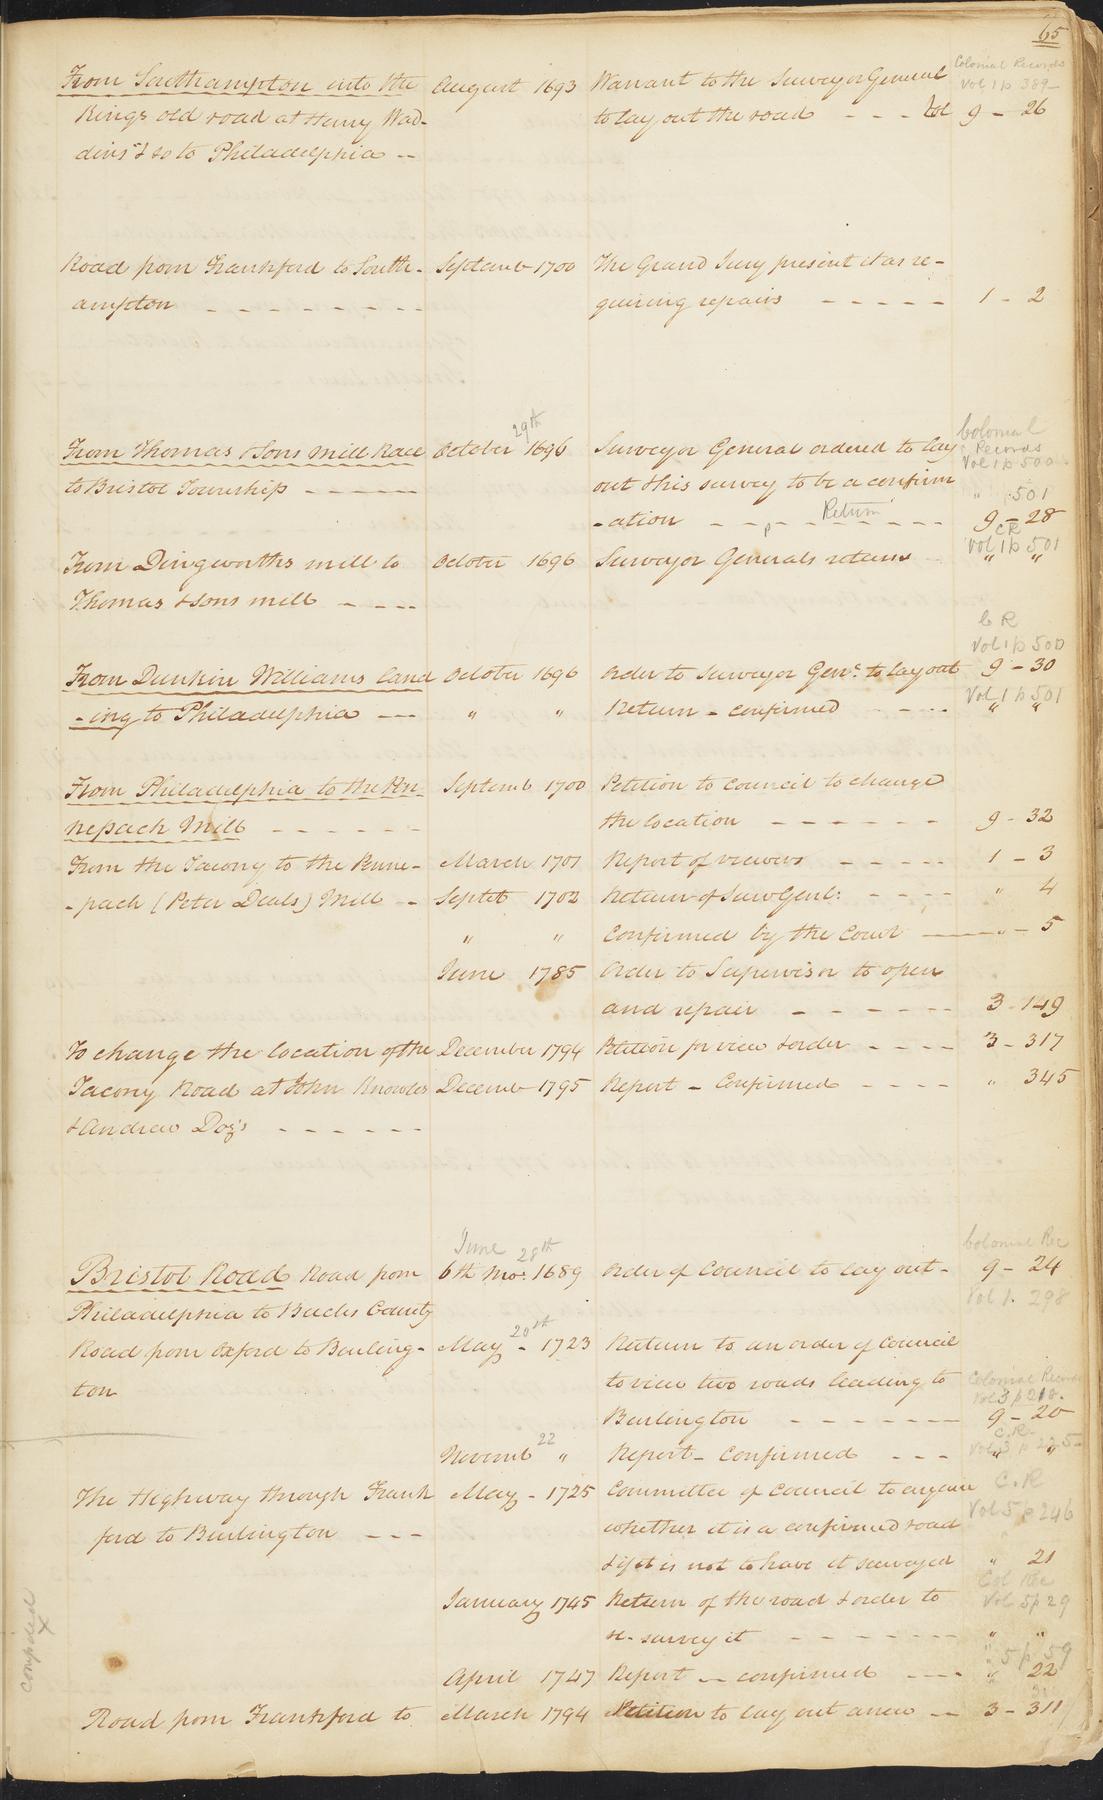 65
Colonial Records
Vol 1 p 389
From Southampton into the August 1693 Warrant to the Surveyor General
Kings old road at Henry Wad- to lay out the road - - - Vol 9 - 26
dins & so to Philadelphia --
Road from Frankford to South- Septemb 1700 The Grand Jury present it as re-
ampton - - - - - - - - quiring repairs - - - - - 1 - 2
29th Colonial
From Thomas & Sons Mill Race October 1696 Surveyor General ordered to lay Records
Vol 1 p 500
to Bristol Township - - - - - out this survey to be a confirm " 501
-ation - - - - - - - - 9 - 28
p Return
C R
From Dingworths mill to October 1696 Surveyor Generals return Vol 1 p 501
" "
Thomas & sons mill - - - -
C R
Vol 1 p 500
From Dunkin Williams land October 1696 Order to Surveyor Genl. to lay out 9 - 30
-ing to Philadelphia --- " " Return - confirmed - - - - Vol 1 p 501
" "
From Philadelphia to the Pen- Septemb 1700 Petition to Council to change
nepach Mill - - - - - - the location - - - - - - 9 - 32
From the Tacony to the Penne- March 1701 Report of viewers - - - - - 1 - 3
-pach (Peter Deals) Mill - Septeb 1702 Return of Surv Genl: - - - - " 4
" " Confirmed by the Court ---- " - 5
June 1785 Order to Supervisor to open
and repair - - - - - - 3 - 149
To change the location of the December 1794 Petition for view & order - - - - 3 - 317
Tacony Road at John Knowles Decemb 1795 Report - Confirmed - - - - " 345
& Andrew Doz's - - - - - -
June 28th Colonial Rec
Bristol Road Road from 6th Mo: 1689 Order of Council to lay out - 9 - 24
Vol 1. 298
Philadelphia to Bucks County
20th
Road from Oxford to Burling- May - 1723 Return to an order of Council
ton to view two roads leading to Colonial Records
Vol 3 p 218.
Burlington - - - - - - - 9 - 20
C.R.
22
Novemb " Report - Confirmed - - - Vol 3 p 225
" "
The Highway through Frank May - 1725 Committee of Council to enquire C.R
Vol 5 p 246
ford to Burlington - - - whether it is a confirmed road
& if it is not to have it surveyed " 21
Col Rec
January 1745 Return of the road & order to Vol 5 p 29
re-survey it - - - - - - - " "
" 5 p 59
April 1747 Report -- confirmed - - - - " 22
Road from Frankford to March 1794 Petition to lay out anew -- 3 - 311